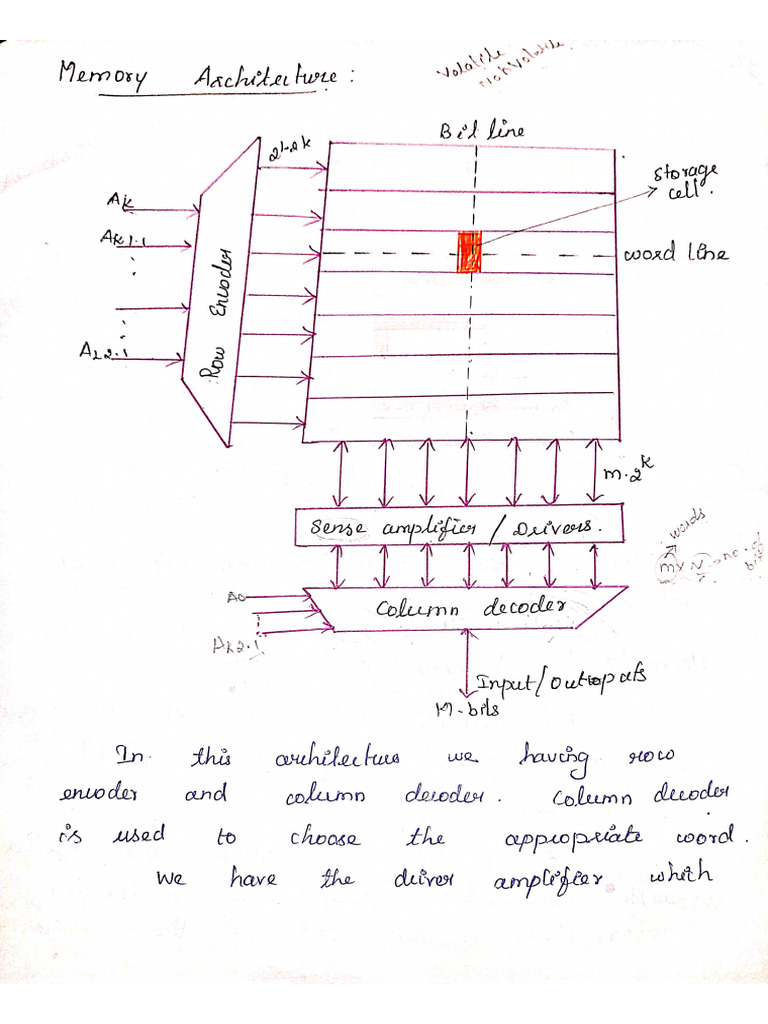 Memory Architecture :
Volatile
nonvolatile
Bit line
2^L-k
Storage
cell.
AK
AK+1
word line
Row Encoder
AL2-1
m.2^k
Sense amplifier / Drivers.
words
m x N → no. of
bits
A0
Column decoder
AL2-1
Input/Outopats
M-bits
In this architecture we having row
encoder and column decoder. Column decoder
is used to choose the appropriate word.
We have the driver amplifier which